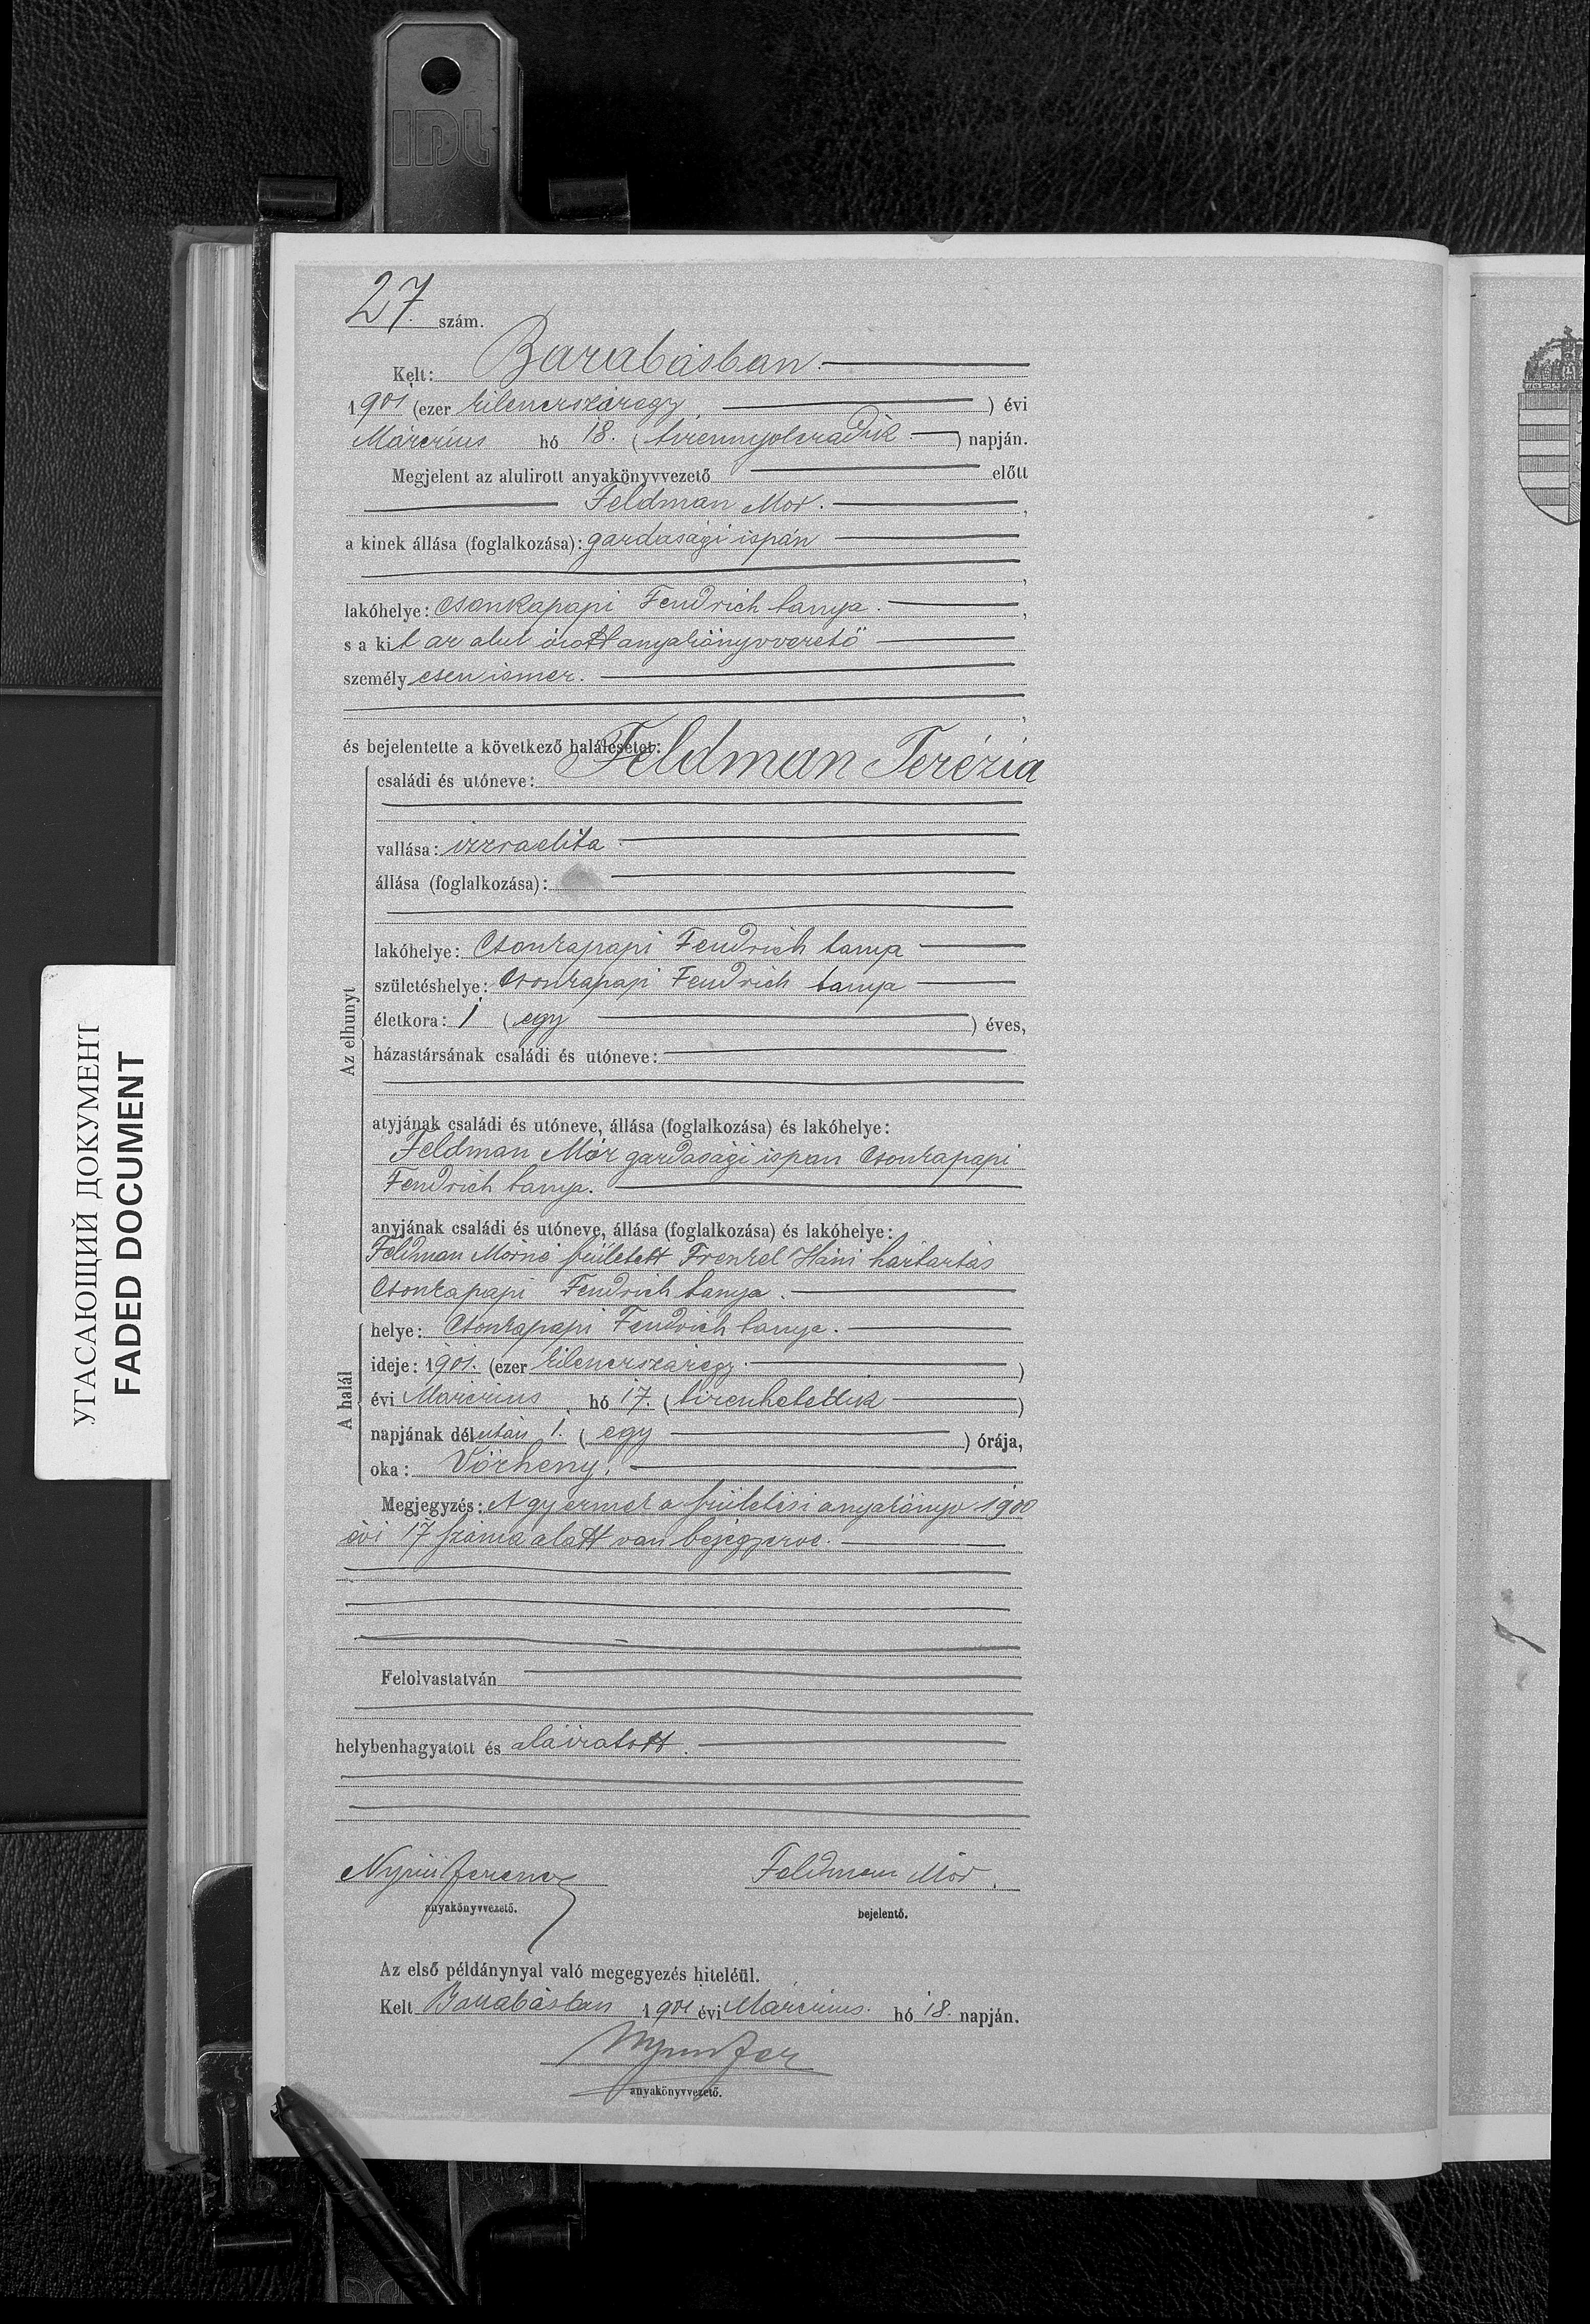 IDL
27. szám.
Kelt: Barabásban.
1901 (ezer kilencszázegy) évi
Március hó 18. (tizennyolczadik) napján.
Megjelent az alulirott anyakönyvvezető előtt
Feldman Mór.
a kinek állása (foglalkozása): gazdasági ispán
lakóhelye: Csonkapapi Fendrich tanya.
s a kit az alul irott anyakönyvvezető
személyesen ismer.
és bejelentette a következő halálesetet:
Az elhunyt
családi és utóneve: Feldman Terézia
vallása: izraelita
állása (foglalkozása):
lakóhelye: Csonkapapi Fendrich tanya
születéshelye: Csonkapapi Fendrich tanya
életkora: 1 (egy) éves,
házastársának családi és utóneve:
atyjának családi és utóneve, állása (foglalkozása) és lakóhelye:
Feldman Mór gazdasági ispán Csonkapapi
Fendrich tanya.
anyjának családi és utóneve, állása (foglalkozása) és lakóhelye:
Feldman Mórné született Frenkel Háni háztartás
Csonkapapi Fendrich tanya.
A halál
helye: Csonkapapi Fendrich tanya.
ideje: 1901. (ezer kilencszázegy.)
évi Március hó 17. (tizenhetedik)
napjának délután 1. (egy) órája,
oka: Vörheny.
Megjegyzés: A gyermek a születési anyakönyv 1900
évi 17 száma alatt van bejegyezve.
Felolvastatván
helybenhagyatott és aláiratott.
Nyiri Ferencz
anyakönyvvezető.
Feldman Mór.
bejelentő.
Az első példánynyal való megegyezés hiteléül.
Kelt Barabásban 1901 évi Március hó 18. napján.
anyakönyvvezető.
УГАСАЮЩИЙ ДОКУМЕНТ
FADED DOCUMENT